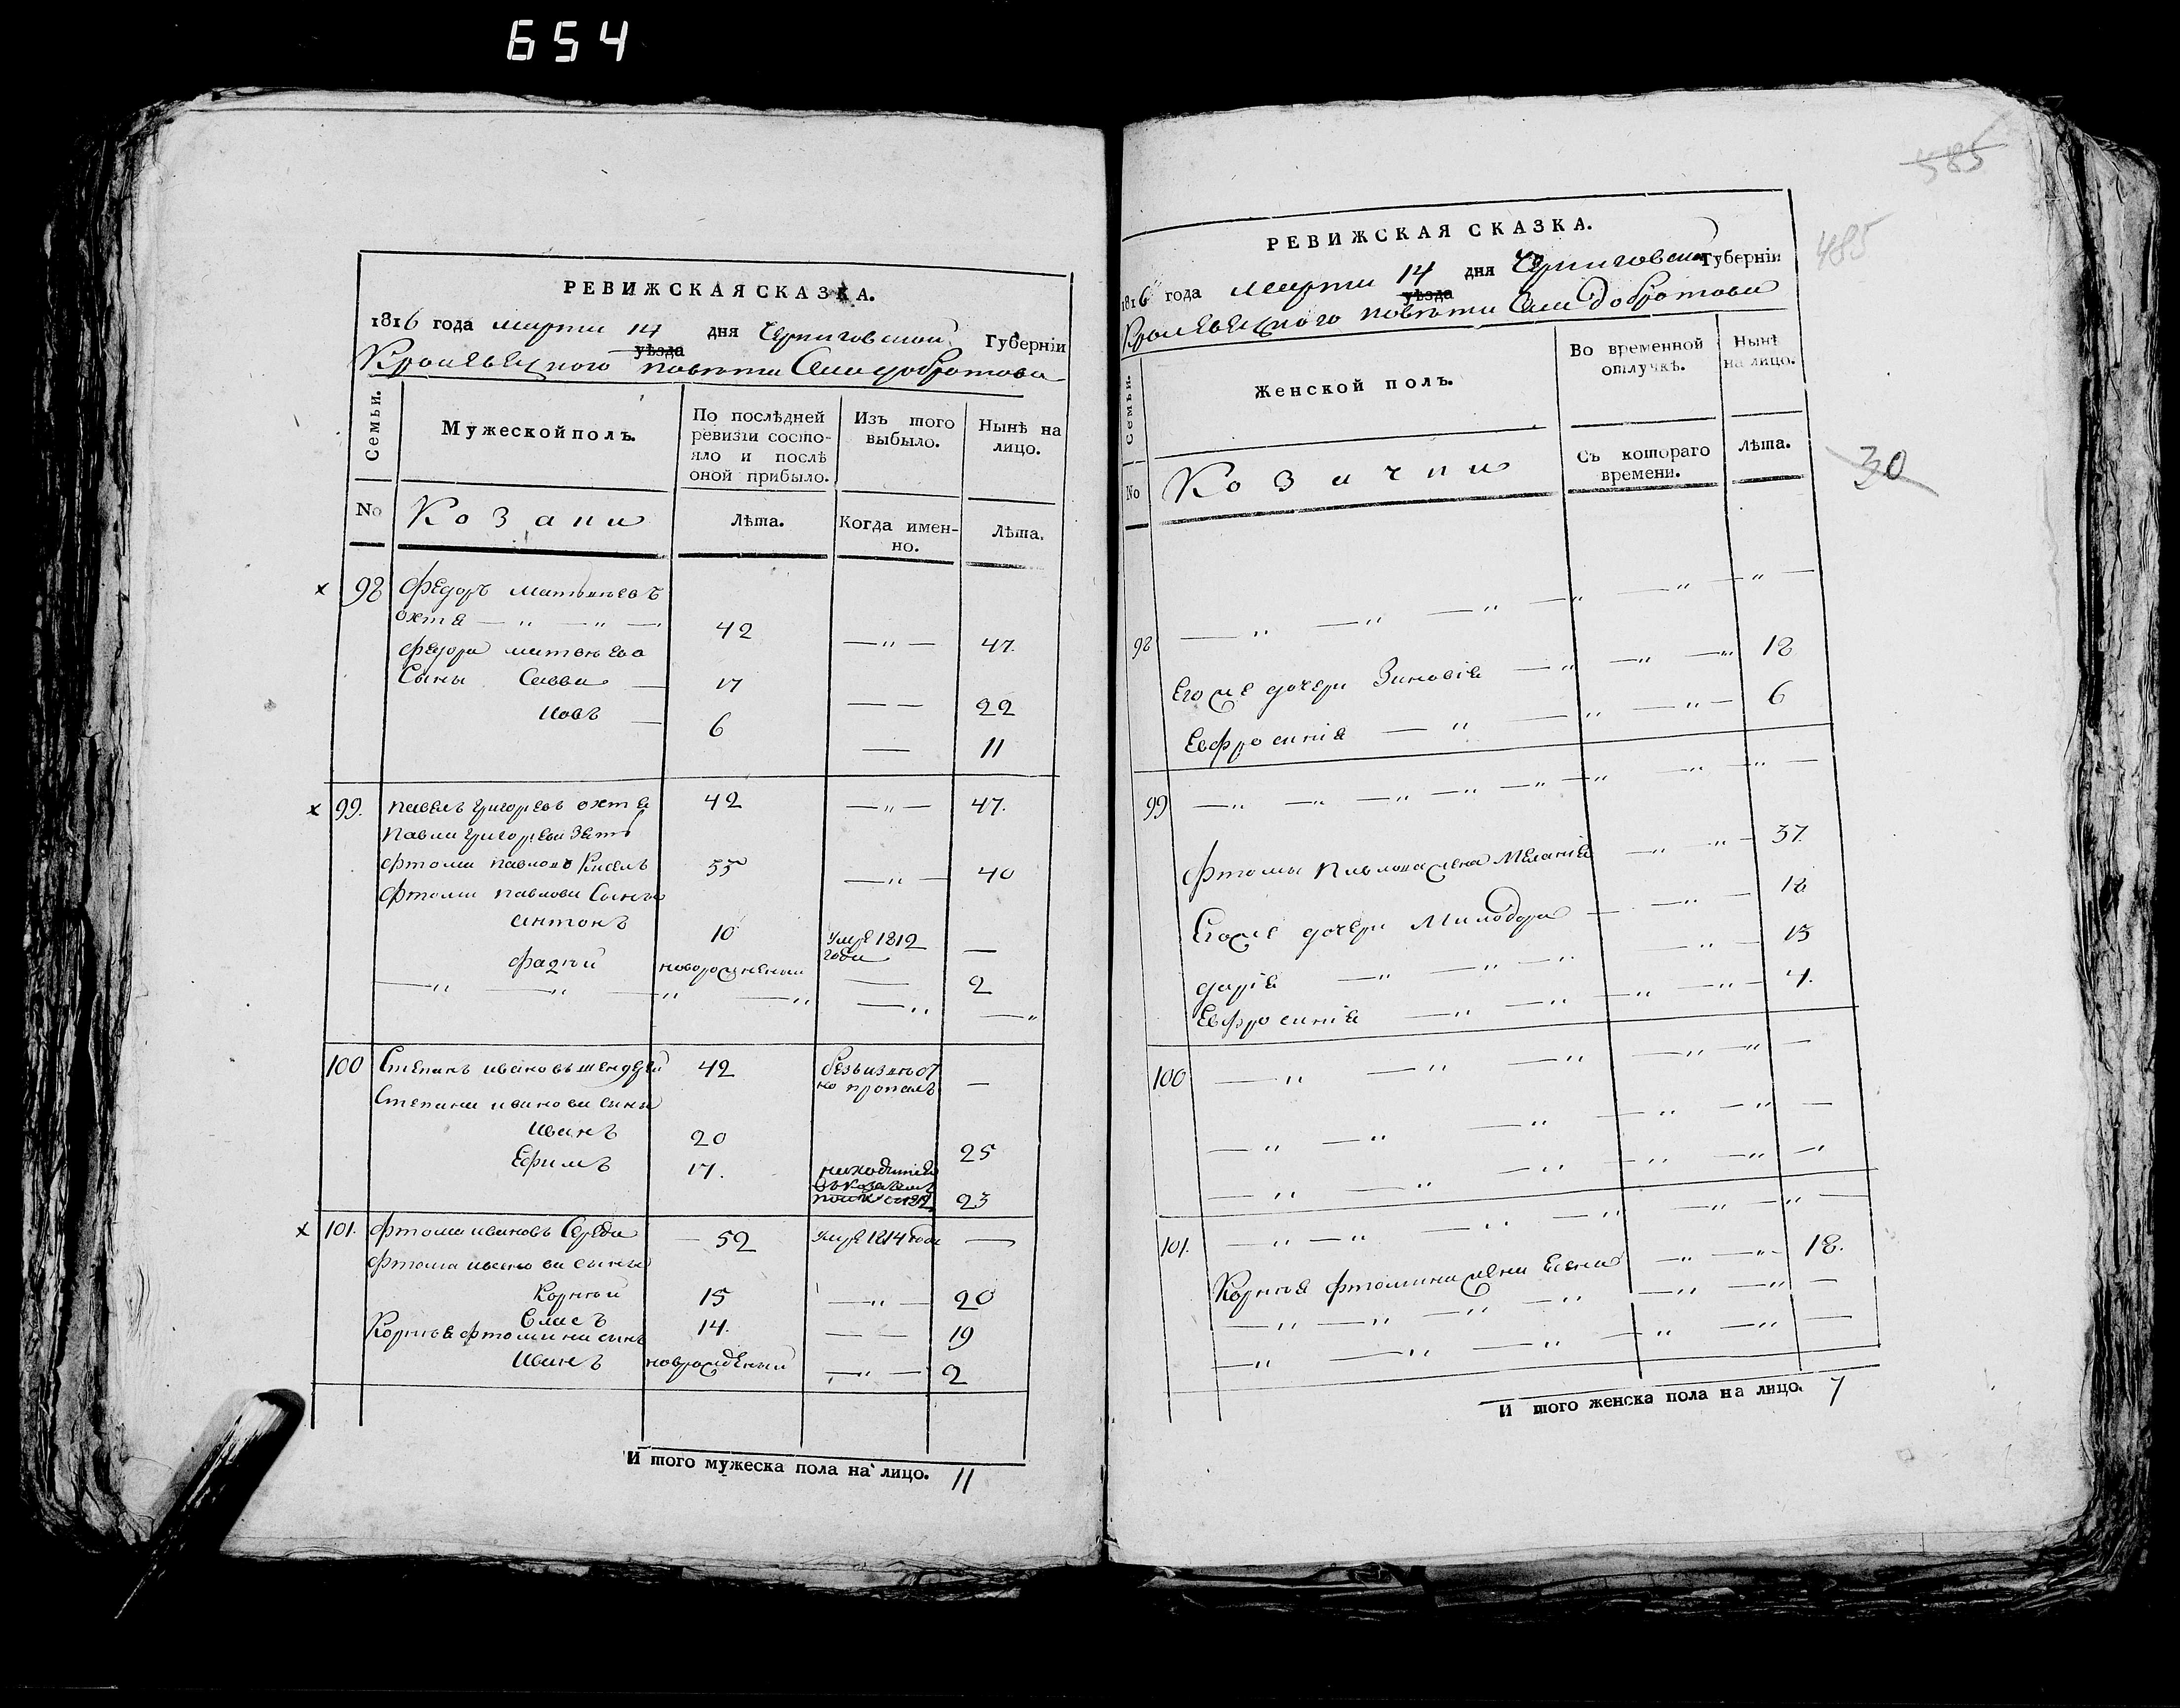 654
РЕВИЖСКАЯ СКАЗКА.
1816 года марта 14 дня Черниговской Губерніи
уѣзда
Кролевецкого повѣта Села добротова
Семьи.
Мужеской полъ.
По послѣдней ревизіи состо-
яло и послѣ
оной прибыло.
Изъ того
выбыло.
Нынѣ на
лицо.
No
Козаки
Лѣта.
Когда имен-
но.
Лѣта.
98 Федоръ матвѣевъ
охтя — " — " — 42 — " — 47.
Федора матвѣева
Сыны Савва — 17 — — 22
Иовъ — 6 — 11
99. Павелъ григорьевъ охтя 42 — " — 47.
Павла григорьева зять
Фтома павловъ Киселъ 35 — " — 40
Фтомы павлова Сыны
антонъ 10 умре 1812 —
года
Фадѣй новорожденый — 2
100 Степанъ ивановъ 42 безъизвѣст
но пропалъ —
Степана иванова сыны
Иванъ 20 25
Ефимъ 17. находится
23
101. Фтома ивановъ Середа — 52 умре 1814 года —
Фтомы иванова сыны
Корнѣй 15 — " — 20
Власъ 14. — — 19
Корнѣя фтомина сынъ
Иванъ новрожденый — " — 2
И того мужеска пола на лицо. 11
585
РЕВИЖСКАЯ СКАЗКА.
1816 года марта 14 дня Черниговской Губерніи
уѣзда
Кролевецкого повѣта Села добротова
485
Семьи.
Женской полъ.
Во временной
отлучкѣ.
Нынѣ
на лицо.
No
Козачки
Съ котораго
времени.
Лѣта.
30
98 — " — " — " — " — " — " —
Его же дочери Зиновія — " — " — " 18
Евфросинія — " — " — " — 6
99 — " — " — " — " — " — " — " — " —
Фтомы Павлова жена Меланія — " " — 37.
Его же дочери Милодора — " — 18
дарія — " — " — " — " — 13
Евфросинія — " — " — " — " — 4.
100 — " — " — " — " — " —
— " — " — " — " — " —
— " — " — " — " — " — "
101. — " — " — " — " — " — " —
Корнѣя фтомина жена Елена — " — " — 18.
— " — " — " — " — " — " —
— " — " — " — " — " —
И того женска пола на лицо. 7